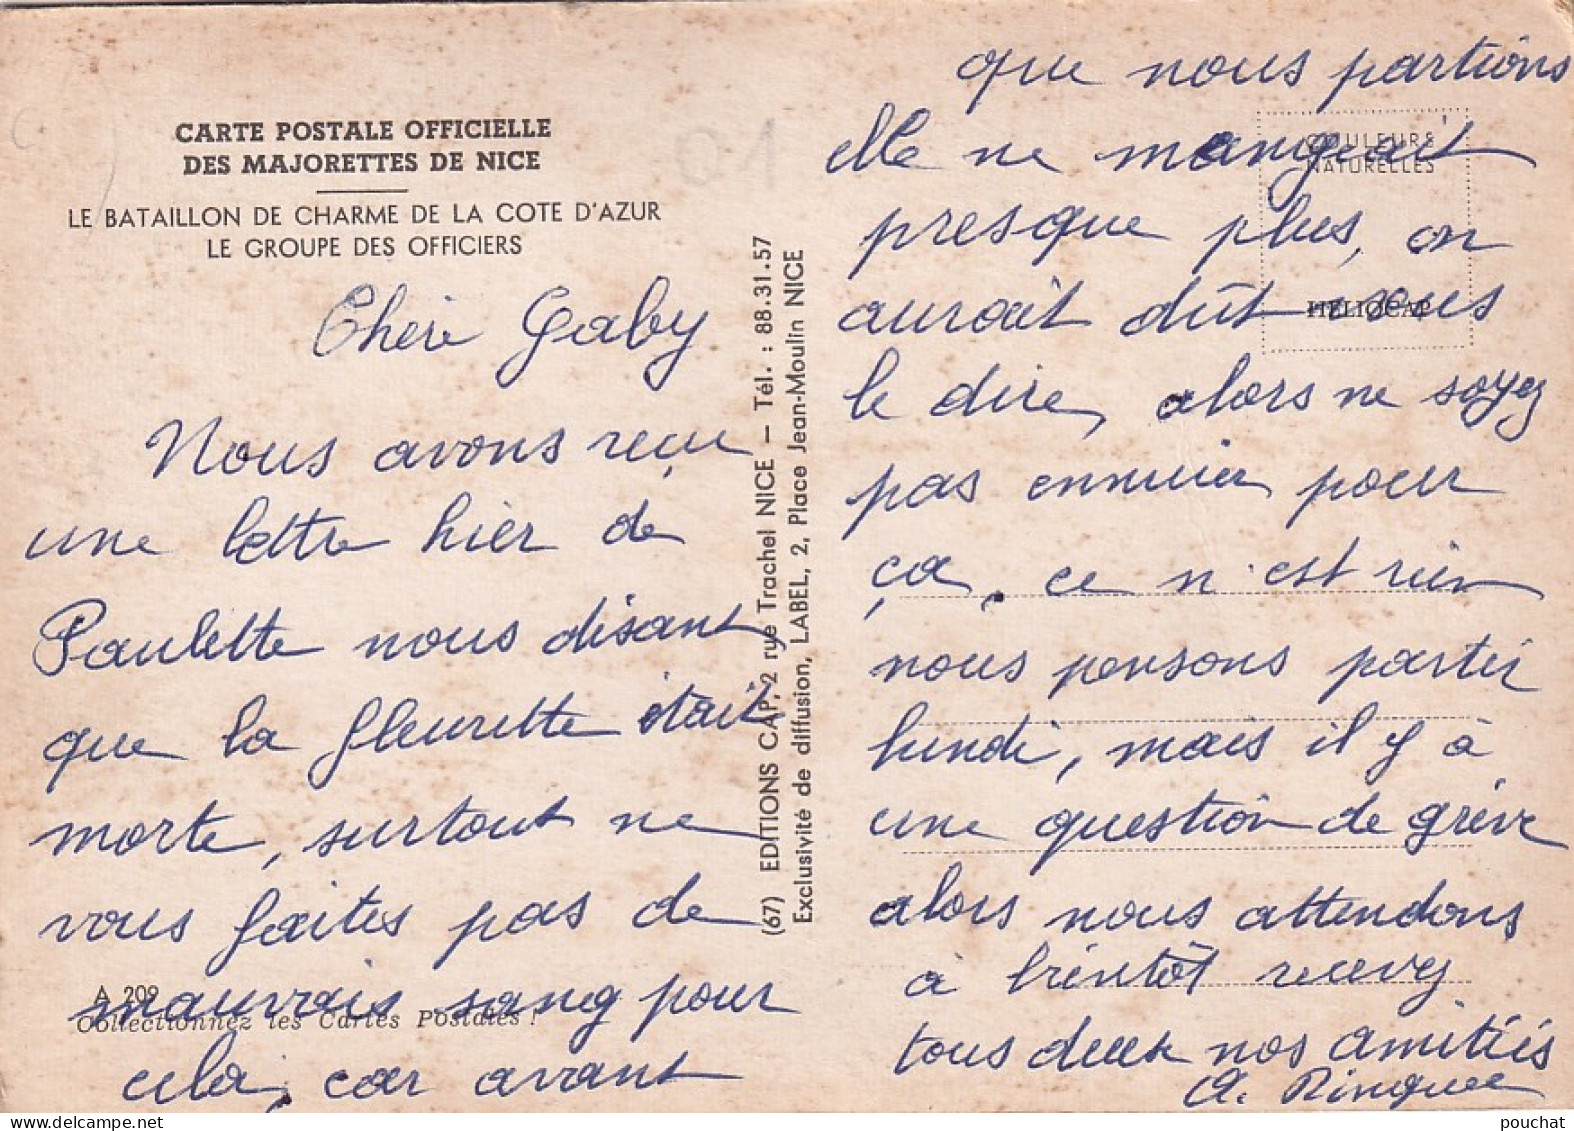 CARTE POSTALE OFFICIELLE
DES MAJORETTES DE NICE
LE BATAILLON DE CHARME DE LA COTE D'AZUR
LE GROUPE DES OFFICIERS
Chère Gaby
Nous avons reçu
une lettre hier de
Paulette nous disant
que la fleurette était
morte, surtout ne
vous faites pas de
mauvais sang pour
cela, car avant
A 209
Collectionnez les Cartes Postales !
(67) EDITIONS CAP, 2 rue Trachel NICE — Tél. : 88.31.57
Exclusivité de diffusion, LABEL, 2, Place Jean-Moulin NICE
que nous partions
elle ne mangeait
presque plus, on
aurait dût vous
le dire, alors ne soyez
pas ennuier pour
ça, ce n'est rien
nous pensons partir
lundi, mais il y à
une question de grève
alors nous attendons
à bientôt recevez
tous deux nos amitiés
A.
COULEURS
NATURELLES
HELIOCAP
pouchat